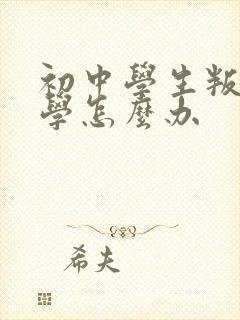 初中學生叛
學怎麼办
希夫